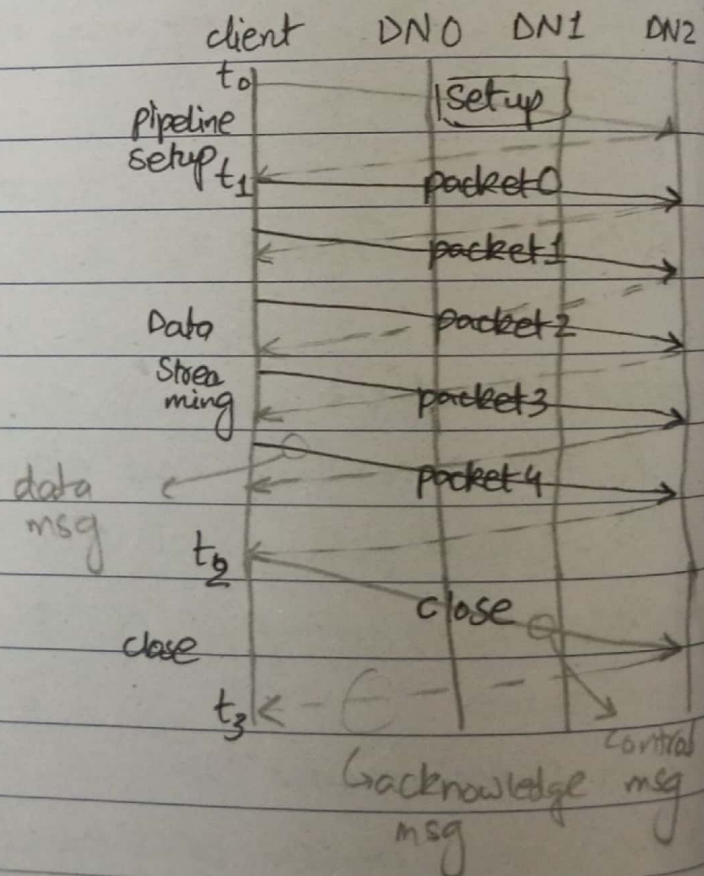 client DN0 DN1 DN2
t0
setup
pipeline
setup t1
packet0
packet1
Data
packet2
Strea
ming
packet3
data
msg
packet4
t2
close
close
t3
control
msg
acknowledge
msg